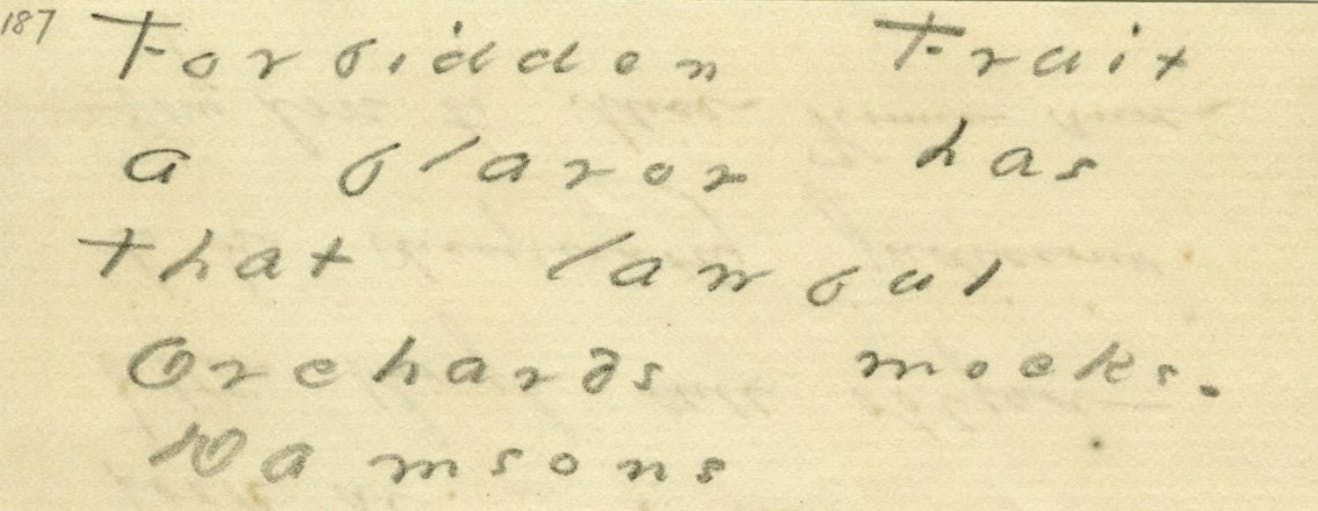 187 Forbidden Fruit
a flavor has
That lawful
Orchards mocks.
Damsons